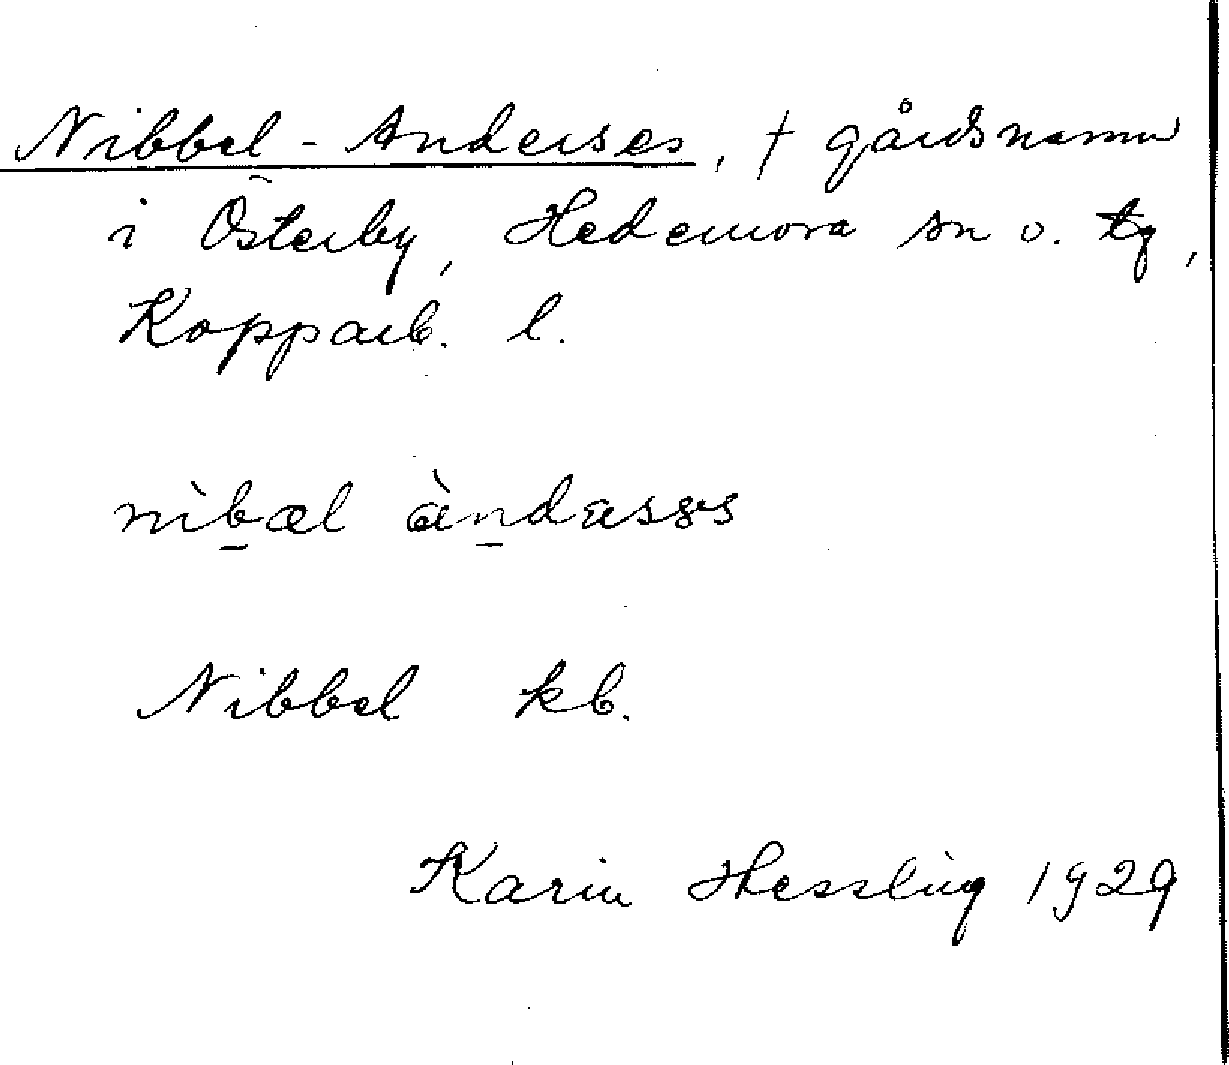 Nibbel-Anderses, † gårdsnamn
i Österby, Hedemora sn o. tg,
Kopparb. l.
nìbæl àndasses
Nibbel kb.
Karin Hessling 1929